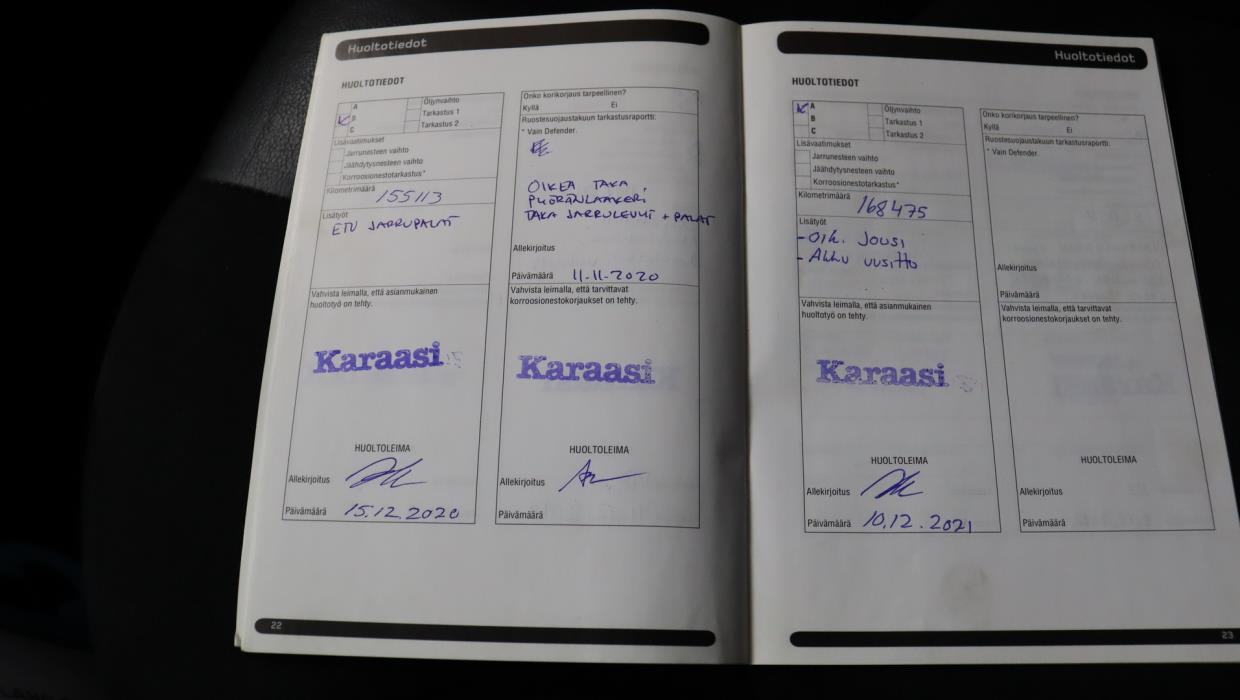 Huoltotiedot
HUOLTOTIEDOT
A
B
C
Öljynvaihto
Tarkastus 1
Tarkastus 2
Lisävaatimukset
Jarrunesteen vaihto
Jäähdytysnesteen vaihto
Korroosionestotarkastus*
Kilometrimäärä
155113
Lisätyöt
ETU JARRUPALAT
Vahvista leimalla, että asianmukainen
huoltotyö on tehty.
Karaasi
HUOLTOLEIMA
Allekirjoitus
Päivämäärä 15.12.2020
Onko korikorjaus tarpeellinen?
Kyllä Ei
Ruostesuojaustakuun tarkastusraportti:
* Vain Defender.
OIKEA TAKA
PYÖRÄNLAAKERI
TAKA JARRULEVYT + PALAT
Allekirjoitus
Päivämäärä 11-11-2020
Vahvista leimalla, että tarvittavat
korroosionestokorjaukset on tehty.
Karaasi
HUOLTOLEIMA
Allekirjoitus
Päivämäärä
22
Huoltotiedot
HUOLTOTIEDOT
A
B
C
Öljynvaihto
Tarkastus 1
Tarkastus 2
Lisävaatimukset
Jarrunesteen vaihto
Jäähdytysnesteen vaihto
Korroosionestotarkastus*
Kilometrimäärä
168475
Lisätyöt
- Oik. Jousi
- Akku uusittu
Vahvista leimalla, että asianmukainen
huoltotyö on tehty.
Karaasi
HUOLTOLEIMA
Allekirjoitus
Päivämäärä 10.12.2021
Onko korikorjaus tarpeellinen?
Kyllä Ei
Ruostesuojaustakuun tarkastusraportti:
* Vain Defender.
Allekirjoitus
Päivämäärä
Vahvista leimalla, että tarvittavat
korroosionestokorjaukset on tehty.
HUOLTOLEIMA
Allekirjoitus
Päivämäärä
23